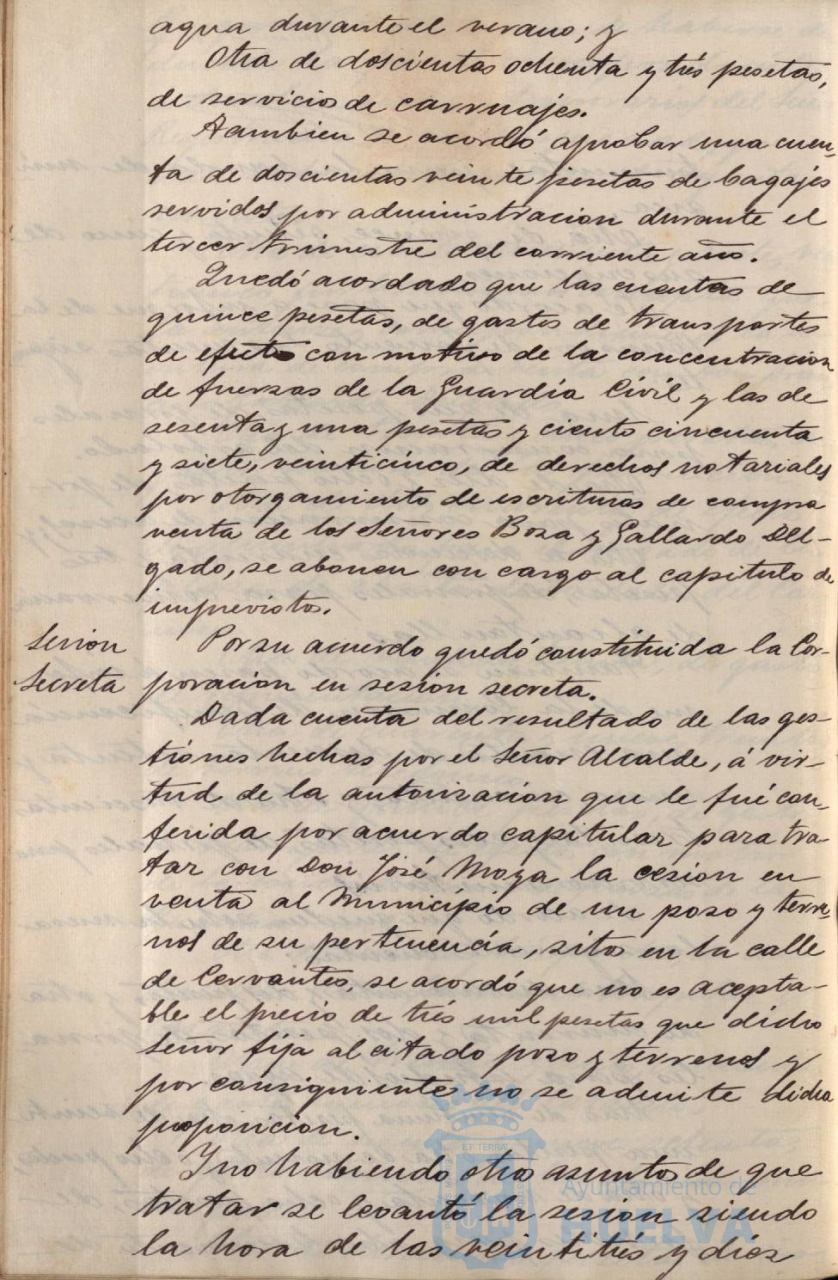 agua durante el verano; y
Otra de doscientas ochenta y trés pesetas,
de servicios de carruajes.
Tambien se acordó aprobar una cuen-
ta de doscientas veinte pesetas de bagajes
servidos por administracion durante el
tercer trimestre del corriente año.
Quedó acordado que las cuentas de
quince pesetas, de gastos de transportes
de efectos con motivo de la concentracion
de fuerzas de la Guardia Civil y las de
sesenta y una pesetas y ciento cincuenta
y siete, veinticinco, de derechos notariales
por otorgamiento de escrituras de compra
venta de los Señores Boza y Gallardo Del-
gado, se abonen con cargo al capitulo de
imprevistos.
Sesion Secreta
Por su acuerdo quedó constituida la Cor-
poracion en sesion secreta.
Dada cuenta del resultado de las ges-
tiones hechas por el Señor Alcalde, á vir-
tud de la autorizacion que le fué con-
ferida por acuerdo capitular para tra-
tar con Don José Moya la cesion en
venta al Municipio de un pozo y terre-
nos de su pertenencia, sitos en la calle
de Cervantes, se acordó que no es acepta-
ble el precio de trés mil pesetas que dicho
Señor fija al citado pozo y terrenos y
por consiguiente no se admite dicha
proposicion.
Y no habiendo otro asunto de que
tratar se levantó la sesion siendo
la hora de las veintitrés y diez
Ayuntamiento de
HUELVA